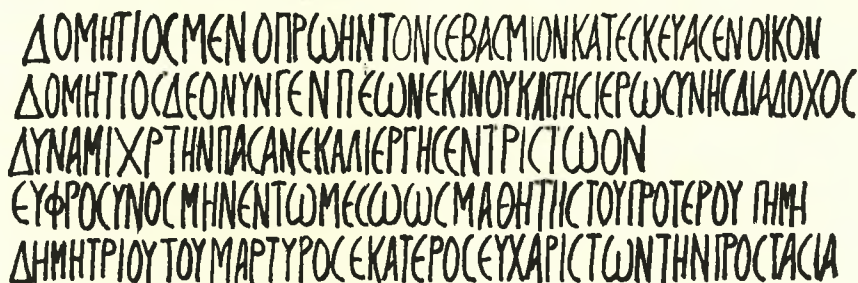 ΔΟΜΗΤΙΟϹΜΕΝ ΟΠΡΩΗΝΤΟΝϹΕΒΑϹΜΙΟΝΚΑΤΕϹΚΕΥΑϹΕΝΟΙΚΟΝ
ΔΟΜΗΤΙΟϹΔΕΟΝΥΝΓΕΝΠΕΩΝΕΚΙΝΟΥΚΑΙΤΗϹΙΕΡΩϹΥΝΗϹΔΙΑΔΟΧΟϹ
ΔΥΝΑΜΙΧΡΤΗΝΠΑϹΑΝΕΚΑΛΙΕΡΓΗϹΕΝΤΡΙϹΤΩΟΝ
ΕΥΦΡΟϹΥΝΟϹΜΗΝΕΝΤΩΜΕϹΩΩϹΜΑΘΗΤΗϹΤΟΥΠΡΟΤΕΡΟΥ ΠΗΜΗ
ΔΗΜΗΤΡΙΟΥΤΟΥΜΑΡΤΥΡΟϹΕΚΑΤΕΡΟϹΕΥΧΑΡΙϹΤΩΝΤΗΝΠΡΟϹΤΑϹΙΑ